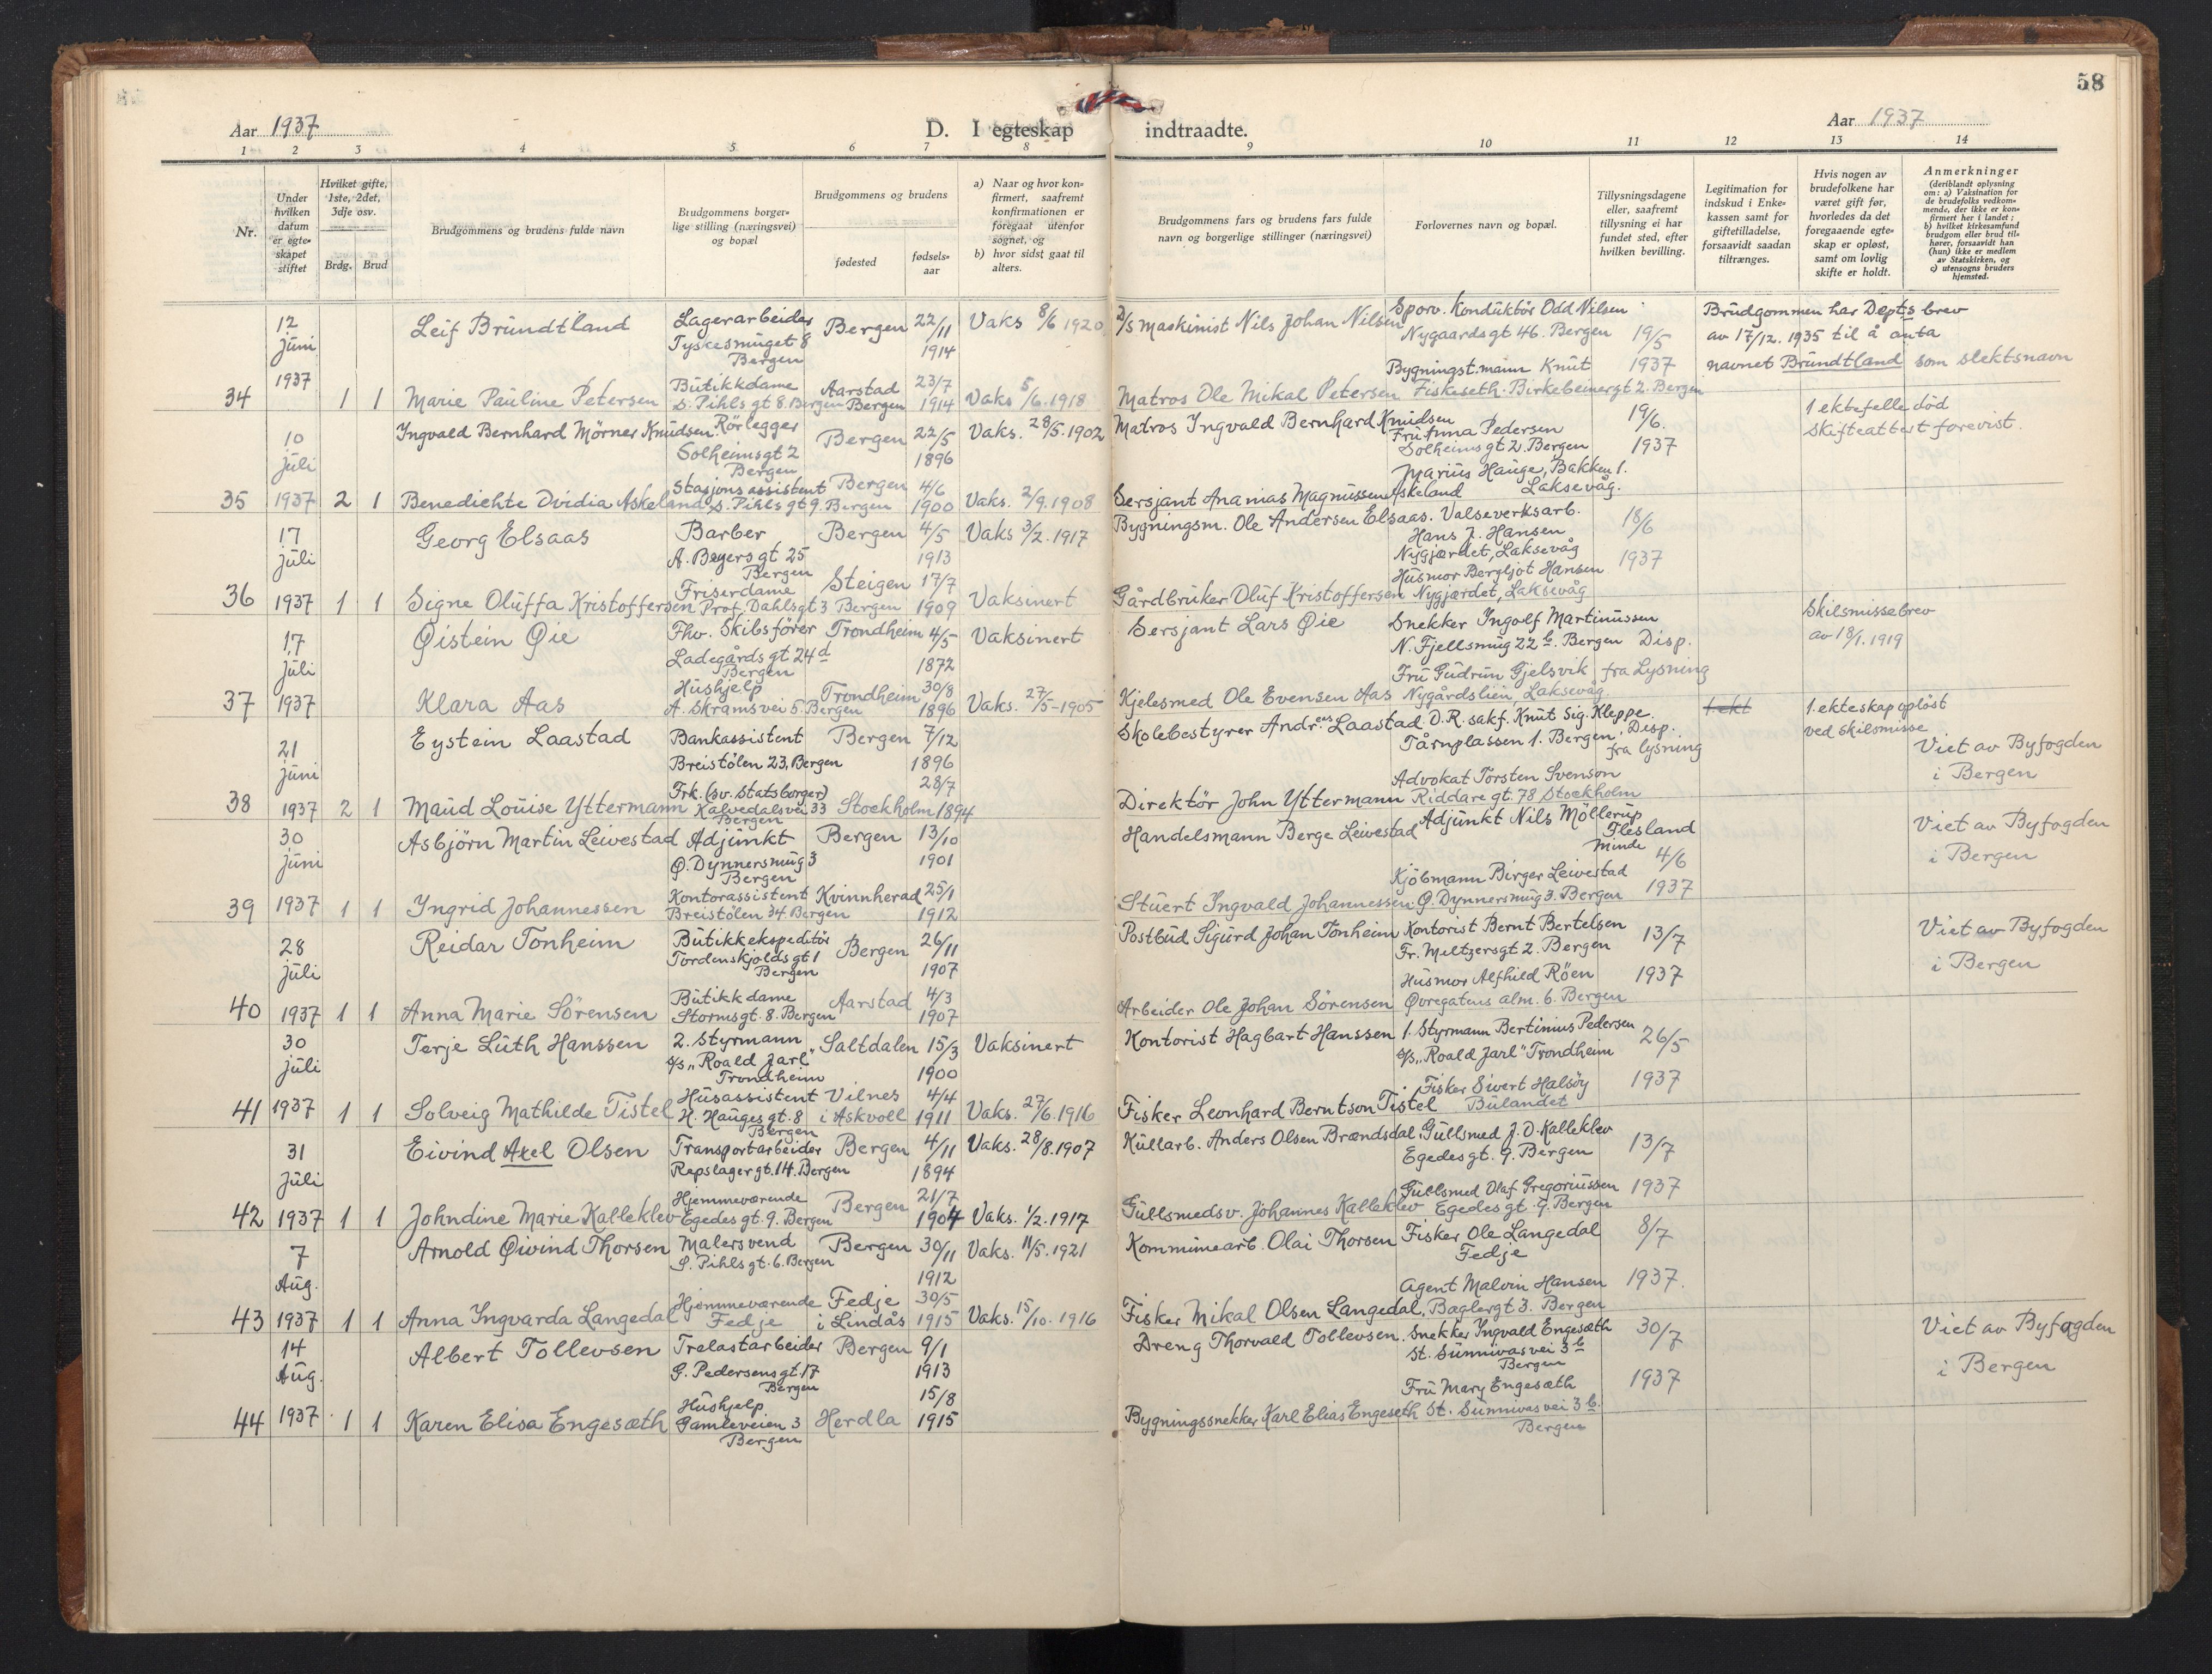 58
Aar 1937
D. I egteskap indtraadte.
Aar 1937
1 2 3 4 5 6 7 8 9 10 11 12 13 14
Nr.
Under hvilken datum er egteskapet stiftet
Hvilket gifte, 1ste, 2det, 3dje osv.
Brdg. Brud
Brudgommens og brudens fulde navn
Brudgommens borgerlige stilling (næringsvei) og bopæl
Brudgommens og brudens
fødested
fødselsaar
a) Naar og hvor konfirmert, saafremt konfirmationen er foregaat utenfor sognet, og
b) hvor sidst gaat til alters.
Brudgommens fars og brudens fars fulde navn og borgerlige stillinger (næringsvei)
Forlovernes navn og bopæl.
Tillysningsdagene eller, saafremt tillysning ei har fundet sted, efter hvilken bevilling.
Legitimation for indskud i Enkekassen samt for giftetilladelse, forsaavidt saadan tiltrænges.
Hvis nogen av brudefolkene har været gift før, hvorledes da det foregaaende egteskap er opløst, samt om lovlig skifte er holdt.
Anmerkninger
(deriblandt oplysning om: a) Vaksination for de brudefolks vedkommende, der ikke er konfirmert her i landet; b) hvilket kirkesamfund brudgom eller brud tilhører, forsaavidt han (hun) ikke er medlem av Statskirken, og c) utensogns bruders hjemsted.
34
12 juni 1937
1 1
Leif Brundtland
Lagerarbeider
Tyskesmuget 8
Bergen
Bergen
22/11 1914
Vaks 8/6 1920
D/S Maskinist Nils Johan Nilsen
Sporv. Konduktör Odd Nilsen
Nygaardsgt 46. Bergen
19/5 1937
Brudgommen har Depts brev
av 17/12. 1935 til å anta
navnet Brundtland som slektsnavn
Marie Pauline Petersen
Butikkdame
S. Pihls gt 8. Bergen
Aarstad
Bergen
23/7 1914
Vaks 5/6. 1918
Matros Ole Mikal Petersen
Bygningst.mann Knut
Fiskeseth. Birkebeinergt 2. Bergen
35
10 juli 1937
2 1
Ingvald Bernhard Mörner Knudsen
Rörlegger
Solheimsgt 2
Bergen
Bergen
22/5 1896
Vaks. 28/5. 1902
Matros Ingvald Bernhard Knudsen
Fru Anna Pedersen
Solheimsgt 2. Bergen
19/6. 1937
1 ektefelle död
skifteattest forevist.
Benedichte Ovidia Askeland
Stasjonsassistent
S. Pihls gt 9. Bergen
Bergen
4/6 1900
Vaks. 2/9. 1908
Sersjant Ananias Magnussen Askeland
Marius Hauge, Bakken 1.
Laksevåg.
36
17 juli 1937
1 1
Georg Elsaas
Barber
A. Beyers gt 25
Bergen
Bergen
4/5 1913
Vaks 3/2. 1917
Bygningsm. Ole Andersen Elsaas.
Valseverksarb.
Hans J. Hansen
Nygjærdet, Laksevåg
18/6 1937
Signe Oluffa Kristoffersen
Friserdame
Prof. Dahlsgt 3 Bergen
Steigen
17/7 1909
Vaksinert
Gårdbruker Oluf Kristoffersen
Husmor Bergljot Hansen
Nygjærdet, Laksevåg
37
17 juli 1937
Øistein Øie
Fhv. Skibsförer
Ladegårds gt 24 d
Bergen
Trondheim
4/5 1872
Vaksinert
Sersjant Lars Øie
Snekker Ingolf Martinussen
N. Fjellsmug 22 b. Bergen
Disp. fra Lysning
Skilsmissebrev
av 18/1. 1919
Klara Aas
Hushjelp
A. Skramsvei 5. Bergen
Trondheim
30/8 1896
Vaks. 27/5-1905
Kjelesmed Ole Evensen Aas
Fru Gudrun Gjelsvik
Nygårdslien Laksevåg.
38
21 juni 1937
2 1
Eystein Laastad
Bankassistent
Breistölen 23, Bergen
Bergen
7/12 1896
Skolebestyrer Andreas Laastad
O. R. sakf. Knut Sig. Kleppe.
Tårnplassen 1. Bergen
Disp. fra lysning
1. ekteskap oplöst
ved skilsmisse
Viet av Byfogden
i Bergen
Maud Louise Yttermann
Frk. (sv. statsborger)
Kalvedalsvei 33
Bergen
Stockholm
28/7 1894
Direktör John Yttermann
Advokat Torsten Svenson
Riddare gt. 78 Stockholm
39
30 juni 1937
1 1
Asbjörn Martin Leivestad
Adjunkt
Ø. Dynnersmug 3
Bergen
Bergen
13/10 1901
Handelsmann Berge Leivestad
Adjunkt Nils Möllerup
Flesland
Minde
4/6 1937
Viet av Byfogden
i Bergen
Ingrid Johannessen
Kontorassistent
Breistölen 34. Bergen
Kvinnherad
25/1 1912
Stuert Ingvald Johannessen
Kjöbmann Birger Leivestad
Ø. Dynnersmug 3. Bergen
40
28 juli 1937
1 1
Reidar Tonheim
Butikkekspeditör
Tordenskjolds gt 1
Bergen
Bergen
26/11 1907
Postbud Sigurd Johan Tonheim
Kontorist Bernt Bertelsen
Fr. Meltzersgt 2. Bergen
13/7 1937
Viet av Byfogden
i Bergen
Anna Marie Sörensen
Butikkdame
Stormsgt. 8. Bergen
Aarstad
4/3 1907
Arbeider Ole Johan Sörensen
Husmor Alfhild Röen
Øvregatens alm. 6. Bergen
41
30 juli 1937
1 1
Terje Luth Hanssen
2. Styrmann
s/s „Roald Jarl"
Trondheim
Saltdalen
15/3 1900
Vaksinert
Kontorist Hagbart Hanssen
1. Styrmann Bertinius Pedersen
s/s „Roald Jarl" Trondheim
26/5 1937
Solveig Mathilde Tistel
Husassistent
H. Hauges gt. 8
Bergen
Vilnes
i Askvoll
4/4 1911
Vaks. 27/6. 1916
Fisker Leonhard Berntson Tistel
Fisker Sivert Halsöy
Bulandet
42
31 Juli 1937
1 1
Eivind Axel Olsen
Transportarbeider
Repslagergt. 14. Bergen
Bergen
4/11 1894
Vaks. 28/8. 1907
Kullarb. Anders Olsen Brændsdal
Gullsmed J. O. Kalleklev
Egedes gt. 9. Bergen
13/7 1937
Johndine Marie Kalleklev
Hjemmeværende
Egedes gt. 9. Bergen
Bergen
21/7 1904
Vaks. 1/2. 1917
Gullsmedsv. Johannes Kalleklev
Gullsmed Olaf Gregoriussen
Egedes gt. 9. Bergen
43
7 Aug. 1937
1 1
Arnold Øivind Thorsen
Malersvend
S. Pihls gt. 6. Bergen
Bergen
30/11 1912
Vaks. 11/5. 1921
Kommunearb. Olai Thorsen
Fisker Ole Langedal
Fedje
8/7 1937.
Anna Ingvarda Langedal
Hjemmeværende
Fedje
Fedje
i Lindås
30/5 1915
Vaks. 15/10. 1916
Fisker Mikal Olsen Langedal,
Agent Malvin Hansen
Baglergt 3. Bergen
44
14 Aug. 1937
1 1
Albert Tollevsen
Tralastarbeider
G. Pedersens gt. 17
Bergen
Bergen
9/1 1913
Dreng Thorvald Tollevsen.
Snekker Ingvald Engesæth
St. Sunnivas vei 3 b
Bergen
30/7 1937
Viet av Byfogden
i Bergen
Karen Elisa Engesæth
Hushjelp
Gamleveien 3
Bergen
Herdla
15/8 1915
Bygningssnekker Karl Elias Engeseth
Fru Mary Engesæth
St. Sunnivas vei 3 b.
Bergen